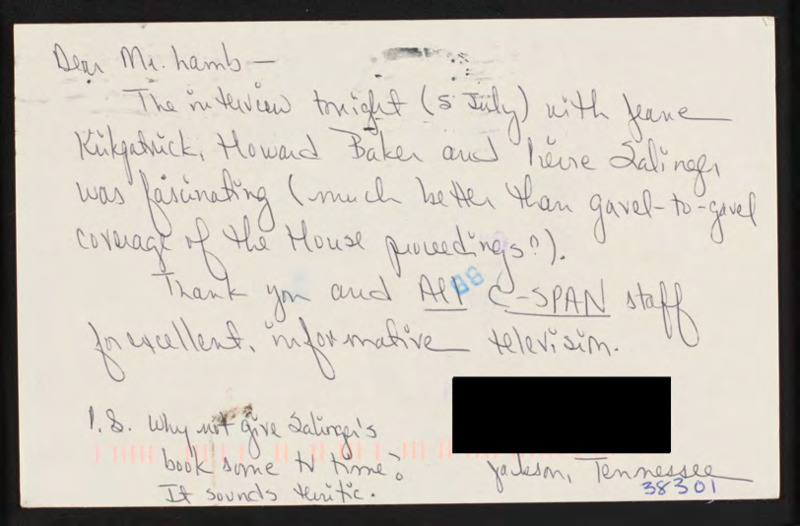 Dear Mr. Lamb—
The interview tonight (5 July) with Jeane
Kirkpatrick, Howard Baker and Pierre Salinger
was fascinating (much better than gavel-to-gavel
coverage of the House proceedings?).
Thank you and All C-SPAN staff
for excellent, informative television.
P.S. Why not give Salinger's
book some tv time?
It sounds terrific.
Jackson, Tennessee
38301